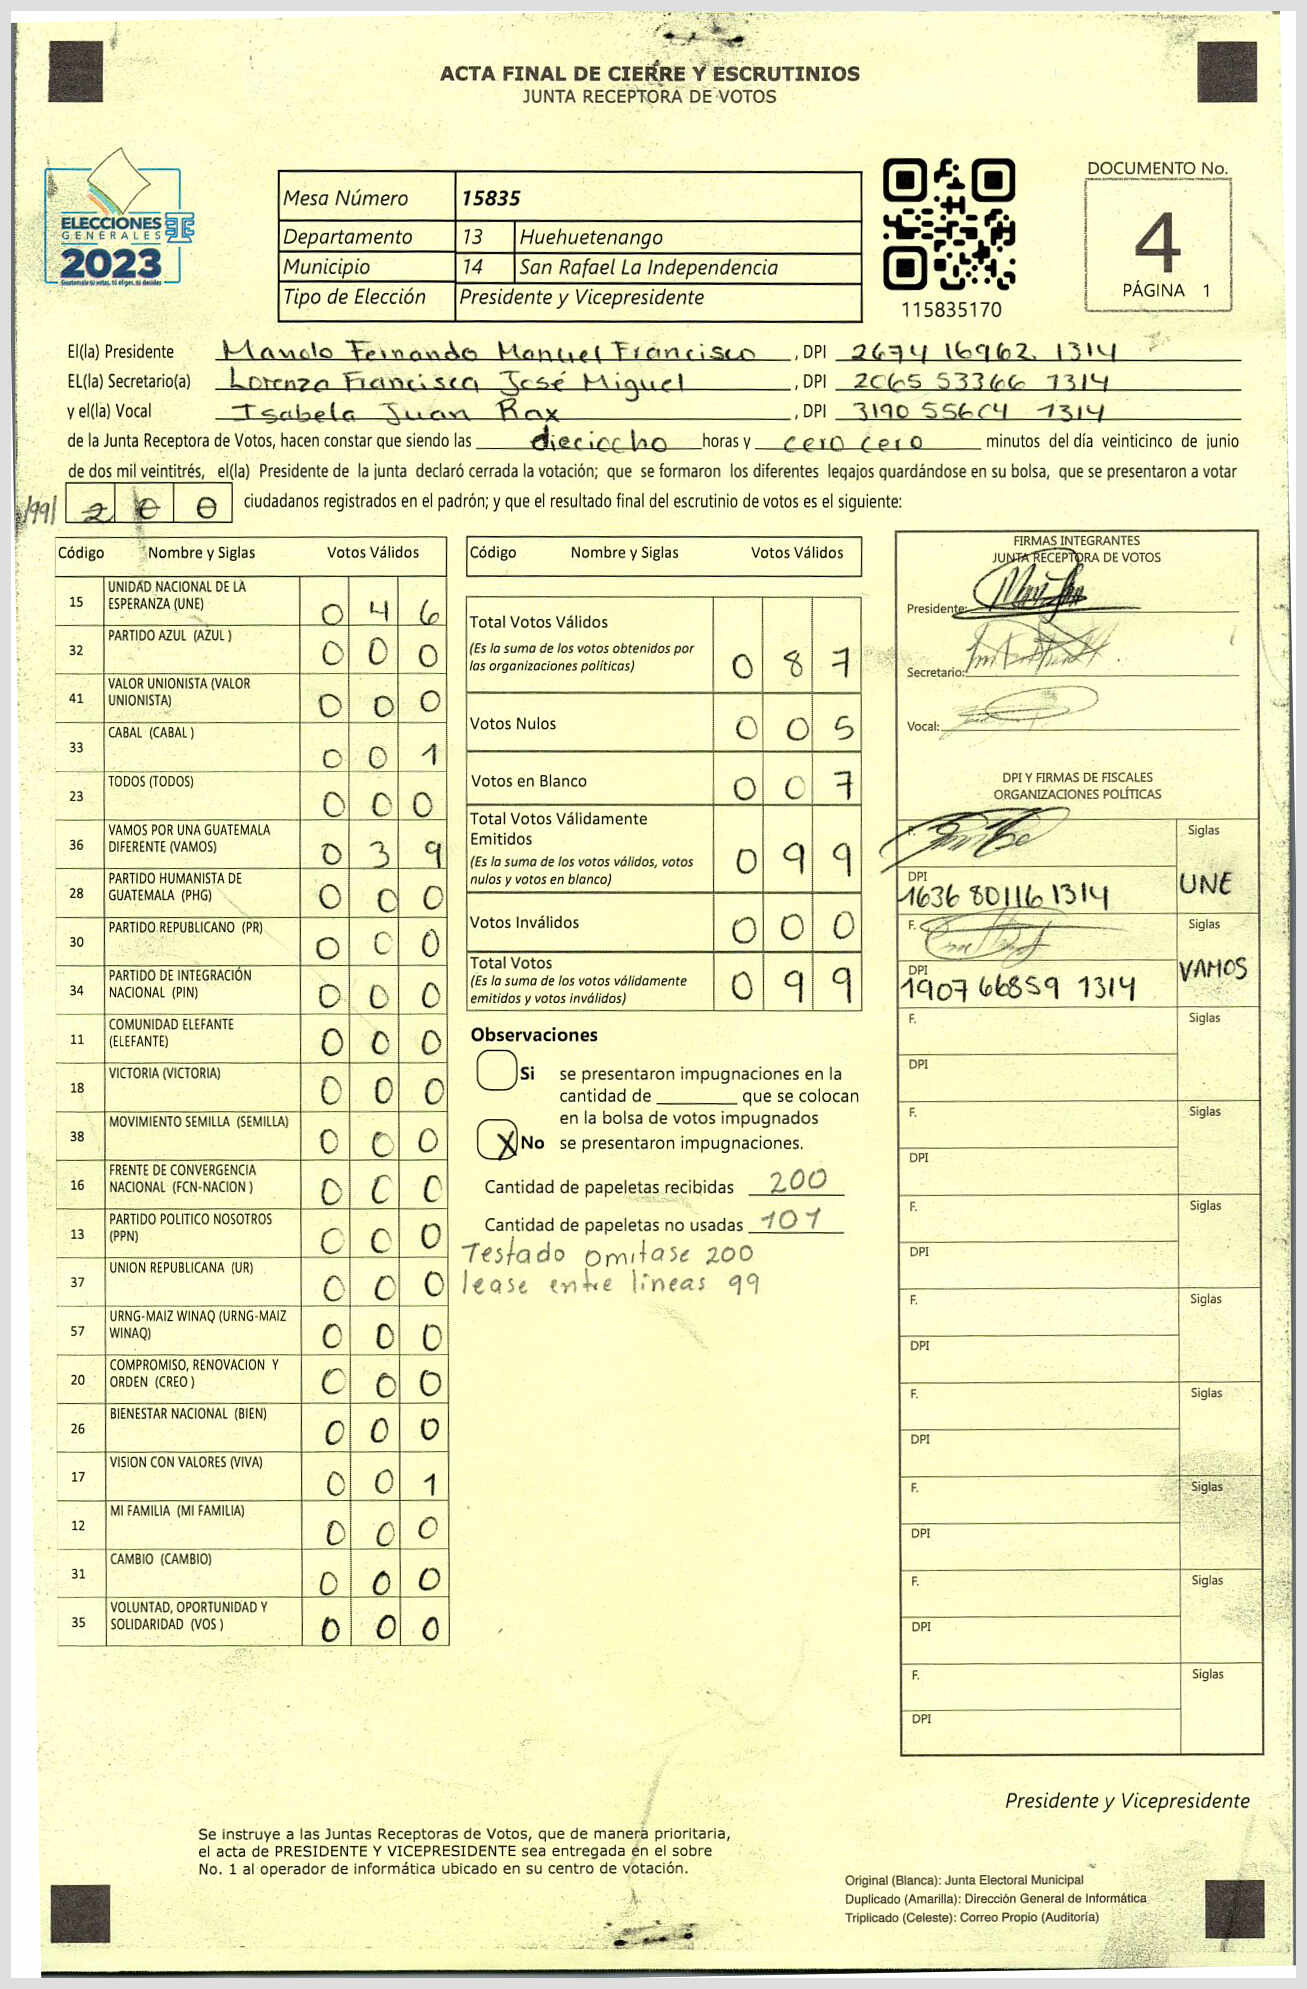 ACTA FINAL DE CIERRE Y ESCRUTINIOS
JUNTA RECEPTORA DE VOTOS
ELECCIONES
GENERALES
2023
Guatemala tú votas, tú eliges, tú decides
Mesa Número 15835
Departamento 13 Huehuetenango
Municipio 14 San Rafael La Independencia
Tipo de Elección Presidente y Vicepresidente
115835170
DOCUMENTO No.
4
PÁGINA 1
El(la) Presidente Manolo Fernando Manuel Francisco, DPI 2674 16962 1314
EL(la) Secretario(a) Lorenza Francisca José Miguel, DPI 2065 53366 1314
y el(la) Vocal Isabela Juan Rax, DPI 3190 55604 1314
de la Junta Receptora de Votos, hacen constar que siendo las dieciocho horas y cero cero minutos del día veinticinco de junio
de dos mil veintitrés, el(la) Presidente de la junta declaró cerrada la votación; que se formaron los diferentes legajos guardándose en su bolsa, que se presentaron a votar
/99/ 2 0 0 ciudadanos registrados en el padrón; y que el resultado final del escrutinio de votos es el siguiente:
Código Nombre y Siglas Votos Válidos
15 UNIDAD NACIONAL DE LA ESPERANZA (UNE) 0 4 6
32 PARTIDO AZUL (AZUL ) 0 0 0
41 VALOR UNIONISTA (VALOR UNIONISTA) 0 0 0
33 CABAL (CABAL ) 0 0 1
23 TODOS (TODOS) 0 0 0
36 VAMOS POR UNA GUATEMALA DIFERENTE (VAMOS) 0 3 9
28 PARTIDO HUMANISTA DE GUATEMALA (PHG) 0 0 0
30 PARTIDO REPUBLICANO (PR) 0 0 0
34 PARTIDO DE INTEGRACIÓN NACIONAL (PIN) 0 0 0
11 COMUNIDAD ELEFANTE (ELEFANTE) 0 0 0
18 VICTORIA (VICTORIA) 0 0 0
38 MOVIMIENTO SEMILLA (SEMILLA) 0 0 0
16 FRENTE DE CONVERGENCIA NACIONAL (FCN-NACION ) 0 0 0
13 PARTIDO POLITICO NOSOTROS (PPN) 0 0 0
37 UNION REPUBLICANA (UR) 0 0 0
57 URNG-MAIZ WINAQ (URNG-MAIZ WINAQ) 0 0 0
20 COMPROMISO, RENOVACION Y ORDEN (CREO ) 0 0 0
26 BIENESTAR NACIONAL (BIEN) 0 0 0
17 VISION CON VALORES (VIVA) 0 0 1
12 MI FAMILIA (MI FAMILIA) 0 0 0
31 CAMBIO (CAMBIO) 0 0 0
35 VOLUNTAD, OPORTUNIDAD Y SOLIDARIDAD (VOS ) 0 0 0
Código Nombre y Siglas Votos Válidos
Total Votos Válidos 0 8 7
(Es la suma de los votos obtenidos por
las organizaciones políticas)
Votos Nulos 0 0 5
Votos en Blanco 0 0 7
Total Votos Válidamente
Emitidos 0 9 9
(Es la suma de los votos válidos, votos
nulos y votos en blanco)
Votos Inválidos 0 0 0
Total Votos 0 9 9
(Es la suma de los votos válidamente
emitidos y votos inválidos)
Observaciones
Si se presentaron impugnaciones en la
cantidad de ________ que se colocan
en la bolsa de votos impugnados
X No se presentaron impugnaciones.
Cantidad de papeletas recibidas 200
Cantidad de papeletas no usadas 101
Testado omitase 200
lease entre lineas 99
FIRMAS INTEGRANTES
JUNTA RECEPTORA DE VOTOS
Presidente:
Secretario:
Vocal:
DPI Y FIRMAS DE FISCALES
ORGANIZACIONES POLÍTICAS
F. Siglas
DPI UNE
1636 80116 1314
F. Siglas
DPI VAMOS
1907 66859 1314
F. Siglas
DPI
F. Siglas
DPI
F. Siglas
DPI
F. Siglas
DPI
F. Siglas
DPI
F. Siglas
DPI
F. Siglas
DPI
F. Siglas
DPI
Presidente y Vicepresidente
Se instruye a las Juntas Receptoras de Votos, que de manera prioritaria,
el acta de PRESIDENTE Y VICEPRESIDENTE sea entregada en el sobre
No. 1 al operador de informática ubicado en su centro de votación.
Original (Blanca): Junta Electoral Municipal
Duplicado (Amarilla): Dirección General de Informática
Triplicado (Celeste): Correo Propio (Auditoría)